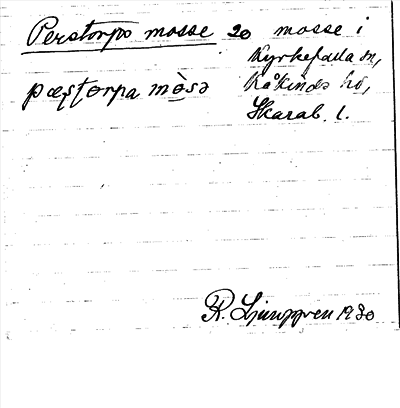 Perstorps mosse 20 mosse i
Kyrkefalla sn,
pæʂtorpa mòsə Kåkinds hd,
Skarab. l.
R. Ljunggren 1930